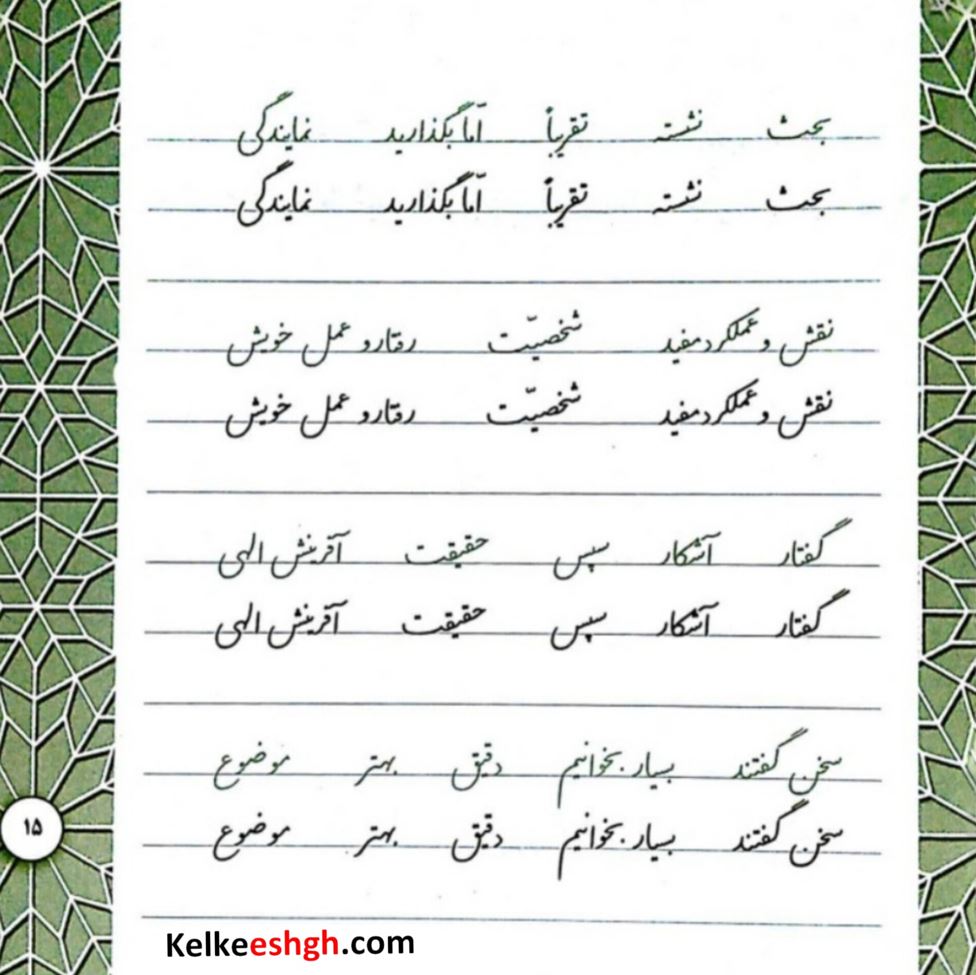 بحث نشسته تقریباً امّا بگذارید نمایندگی
بحث نشسته تقریباً امّا بگذارید نمایندگی
نقش و عملکرد مفید شخصیّت رفتار و عمل خویش
نقش و عملکرد مفید شخصیّت رفتار و عمل خویش
گفتار آشکار سپس حقیقت آفرینش الهی
گفتار آشکار سپس حقیقت آفرینش الهی
سخن گفتند بسیار بخوانیم دقیق بهتر موضوع
سخن گفتند بسیار بخوانیم دقیق بهتر موضوع
۱۵
Kelkeeshgh.com